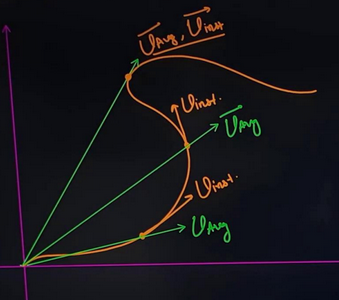 V⃗Avg, V⃗inst
Vinst.
V⃗Avg
Vinst.
VAvg